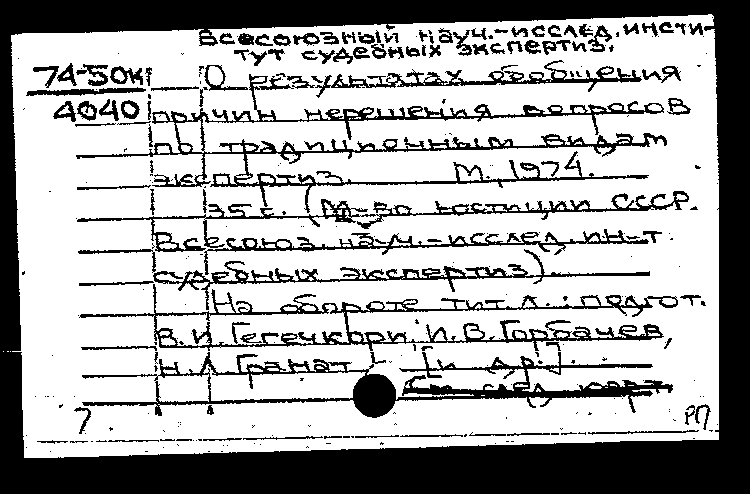 Всесоюзный науч.-исслед. инсти-
тут судебных экспертиз.
74-50к
4040
О результатах обобщения
причин нерешения вопросов
по традиционным видам
экспертиз. М., 1974.
35 с. (М-во юстиции СССР.
Всесоюз. науч.-исслед. ин-т.
судебных экспертиз).
На обороте тит. л.: подгот.
В. И. Гегечкори, И. В. Горбачев,
Н. Л. Гранат [и др.].
след. карт.
7
РП